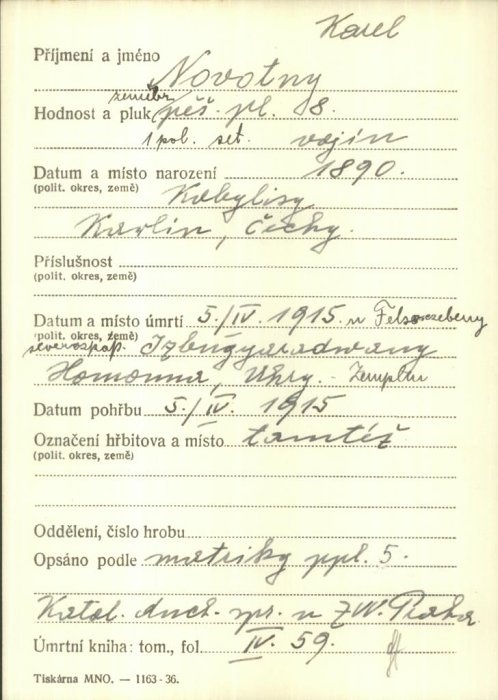 Karel
Příjmení a jméno Novotny
Hodnost a pluk zeměbr. pěš. pl. 8.
1 pol. set. vojín
Datum a místo narození 1890.
(polit. okres, země) Kobylisy
Karlín, Čechy.
Příslušnost
(polit. okres, země)
Datum a místo úmrtí 5./IV. 1915. u
(polit. okres, země)
Homonna, Uhry. - Zemplin
Datum pohřbu 5./IV. 1915
Označení hřbitova a místo tamtéž
(polit. okres, země)
Oddělení, číslo hrobu
Opsáno podle matriky ppl. 5.
Katol. duch. spr. u ZW. Praha.
Úmrtní kniha: tom., fol. IV. 59.
Tiskárna MNO. — 1163-36.